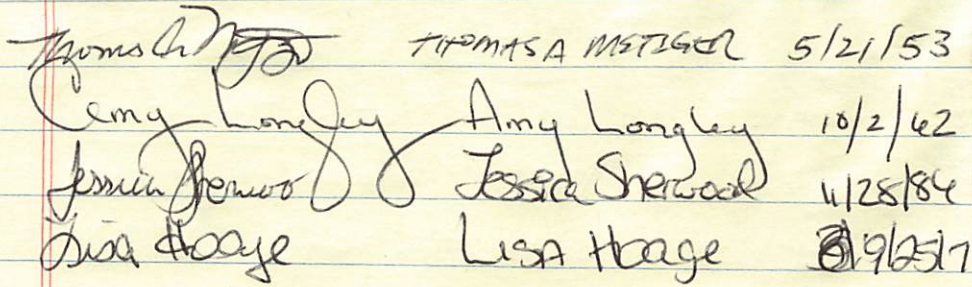 Thomas A Metzger THOMAS A METZGER 5/21/53
Amy Longley Amy Longley 10/2/62
Jessica Sherwood Jessica Sherwood 11/28/84
Lisa Hoage LISA Hoage 9/25/7